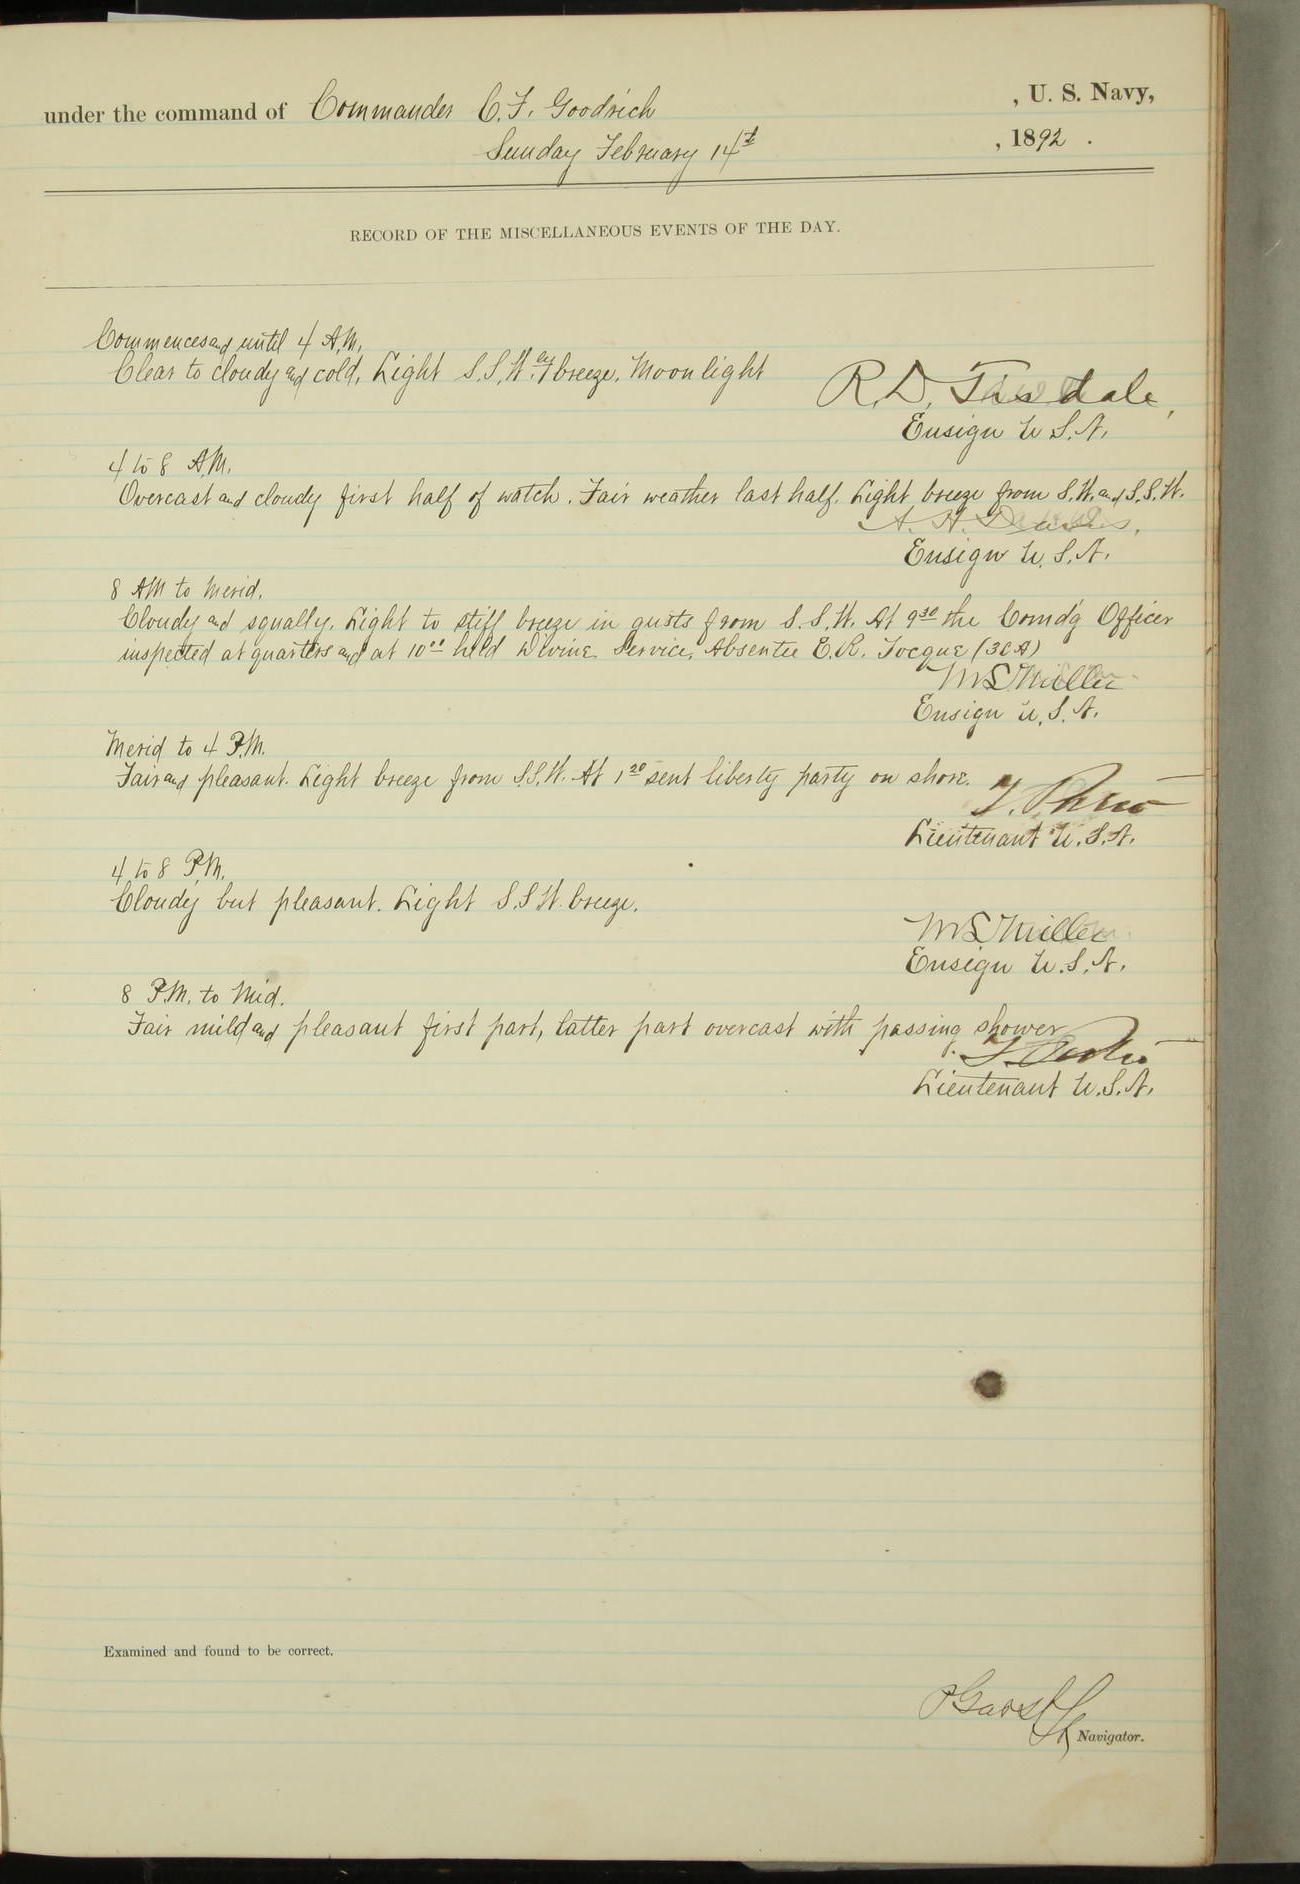 under the command of Commander C. F. Goodrich , U. S. Navy,
Sunday February 14th , 1892 .
RECORD OF THE MISCELLANEOUS EVENTS OF THE DAY.
Commences and until 4 A.M.
Clear to cloudy and cold, Light S.S.W. breeze. Moonlight
R. D. Tisdale,
Ensign U.S.N.
4 to 8 A.M.
Overcast and cloudy first half of watch. Fair weather last half. Light breeze from S.W. and S.S.W.
A. H.
Ensign U.S.N.
8 AM to Merid.
Cloudy and squally. Light to stiff breeze in gusts from S.S.W. At 9 30 the Comd'g Officer
inspected at quarters and at 10 held Divine Service. Absentee E.R. Tocque
M S Miller
Ensign U.S.N.
Merid to 4 P.M.
Fair and pleasant. Light breeze from S.S.W. At 1 20 sent liberty party on shore.
Lieutenant U.S.N.
4 to 8 P.M.
Cloudy but pleasant. Light S.S.W. breeze.
M S Miller
Ensign U.S.N.
8 P.M. to Mid.
Fair mild and pleasant first part, latter part overcast with passing shower
Lieutenant U.S.N.
Examined and found to be correct.
P Garst
Navigator.